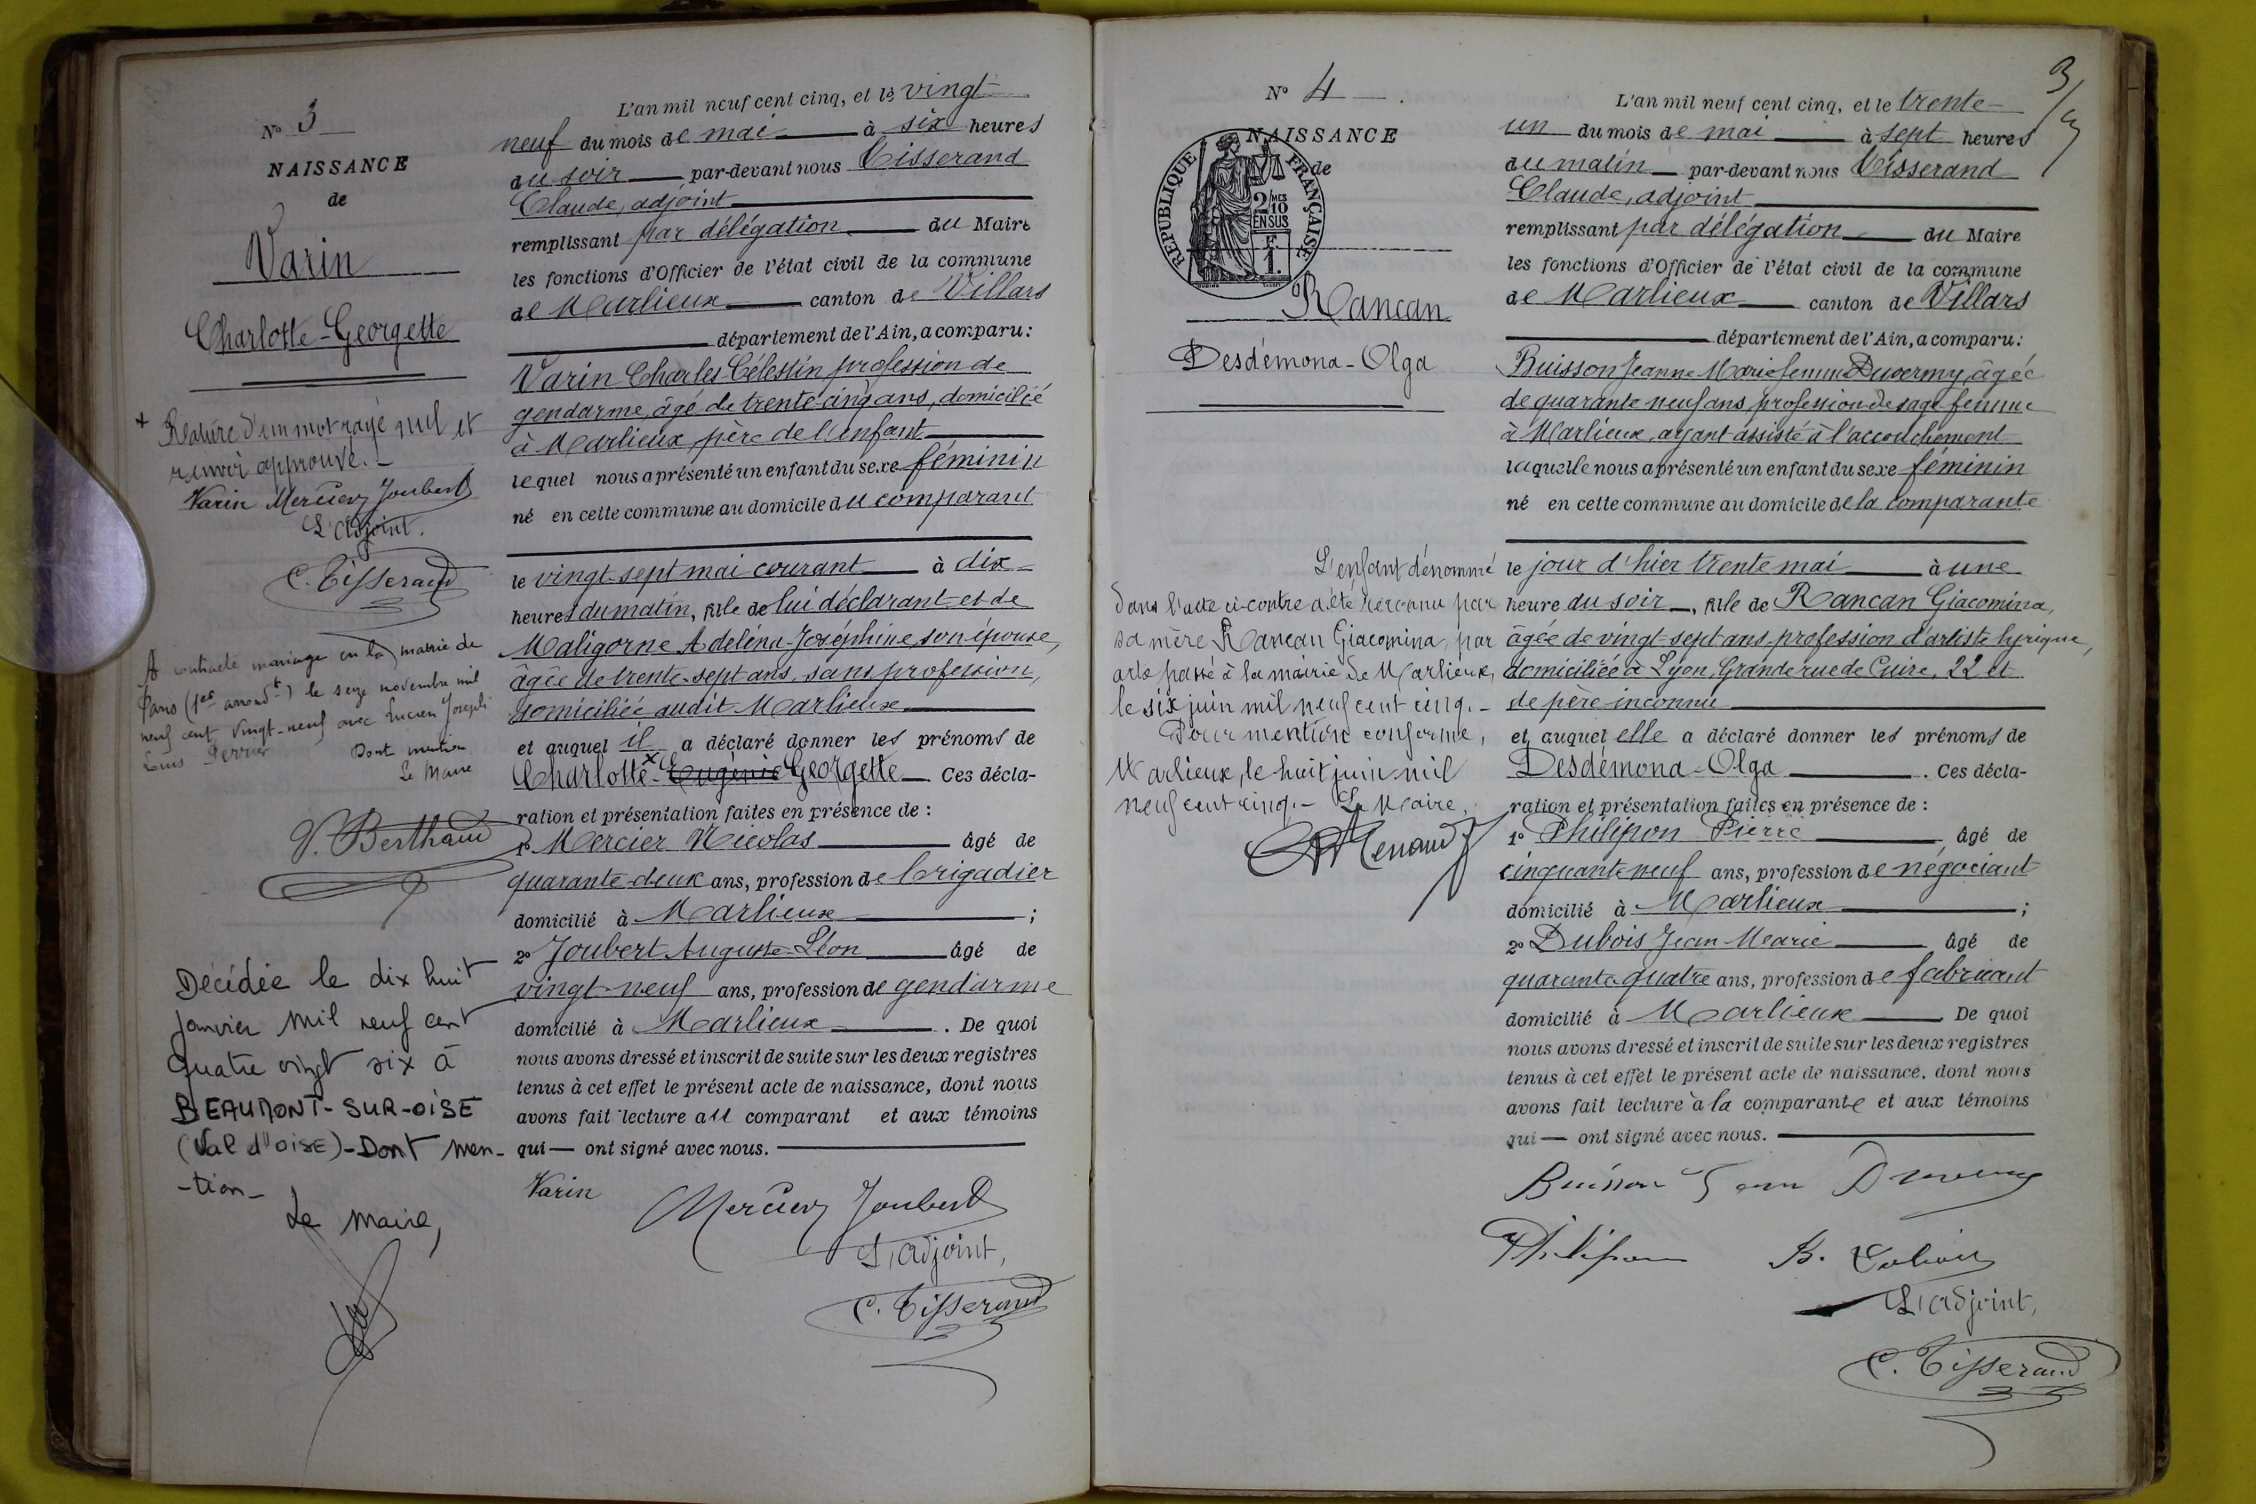 N° 3
NAISSANCE
de
Varin
Charlotte-Georgette
+ Rature d'un mot rayé nul et
renvoi approuvé.-
Varin Mercier Joubert
L'Adjoint.
C. Tisserand
A contracté mariage en la mairie de
Paris (1er arrondt) le seize novembre mil
neuf cent vingt-neuf avec Lucien Joseph
Louis Perrier
Dont mention
Le Maire
V. Berthaud
Décédée le dix huit
Janvier mil neuf cent
quatre vingt six à
BEAUMONT-SUR-OISE
(Val d'oise)-Dont men-
-tion-
Le Maire,
L'an mil neuf cent cinq, et le vingt
neuf du mois de mai à six heures
du soir par-devant nous Tisserand
Claude, adjoint
remplissant par délégation du Maire
les fonctions d'Officier de l'état civil de la commune
de Marlieux canton de Villars
département de l'Ain, a comparu:
Varin Charles Célestin profession de
gendarme, âgé de trente-cinq ans, domicilié
à Marlieux, père de l'enfant
lequel nous a présenté un enfant du sexe féminin
né en cette commune au domicile du comparant
le vingt-sept mai courant à dix
heures du matin, fille de lui déclarant et de
Maligorne Adeléna-Joséphine, son épouse,
âgée de trente-sept ans, sans profession,
domiciliée audit Marlieux
et auquel il a déclaré donner les prénoms de
Charlotte-x Eugénie Georgette Ces décla-
ration et présentation faites en présence de :
1° Mercier Nicolas âgé de
quarante-deux ans, profession de brigadier
domicilié à Marlieux ;
2° Joubert Auguste-Léon âgé de
vingt-neuf ans, profession de gendarme
domicilié à Marlieux . De quoi
nous avons dressé et inscrit de suite sur les deux registres
tenus à cet effet le présent acte de naissance, dont nous
avons fait lecture au comparant et aux témoins
qui — ont signé avec nous.
Varin Mercier Joubert
L'Adjoint,
C. Tisserand
3
N° 4
NAISSANCE
de
RÉPUBLIQUE FRANÇAISE
2/10 MES
EN SUS
F.
1.
Rancan
Desdémona-Olga
L'enfant dénommé
dans l'acte ci-contre a été reconnu par
sa mère Rancan Giacomina, par
acte passé à la mairie de Marlieux,
le six juin mil neuf cent cinq.-
Pour mention conforme,
Marlieux, le huit juin mil
neuf cent cinq.- Le Maire,
L'an mil neuf cent cinq, et le trente
un du mois de mai à sept heures
du matin par-devant nous Tisserand
Claude, adjoint
remplissant par délégation du Maire
les fonctions d'Officier de l'état civil de la commune
de Marlieux canton de Villars
département de l'Ain, a comparu:
Buisson Jeanne Marie femme Duvermy, âgée
de quarante neuf ans, profession de sage-femme
à Marlieux, ayant assisté à l'accouchement
laquelle nous a présenté un enfant du sexe féminin
né en cette commune au domicile de la comparante
le jour d'hier trente mai à une
heure du soir, fille de Rancan Giacomina,
âgée de vingt-sept ans profession d'artiste lyrique,
domiciliée à Lyon, Grande rue de Cuire, 22 et
de père inconnu
et auquel elle a déclaré donner les prénoms de
Desdémona-Olga . Ces décla-
ration et présentation faites en présence de :
1° Philipon Pierre âgé de
cinquante-neuf ans, profession de négociant
domicilié à Marlieux ;
2° Dubois Jean-Marie âgé de
quarante-quatre ans, profession de fabricant
domicilié à Marlieux De quoi
nous avons dressé et inscrit de suite sur les deux registres
tenus à cet effet le présent acte de naissance, dont nous
avons fait lecture à la comparante et aux témoins
qui — ont signé avec nous.
Buisson
Philipon
L'Adjoint,
C. Tisserand